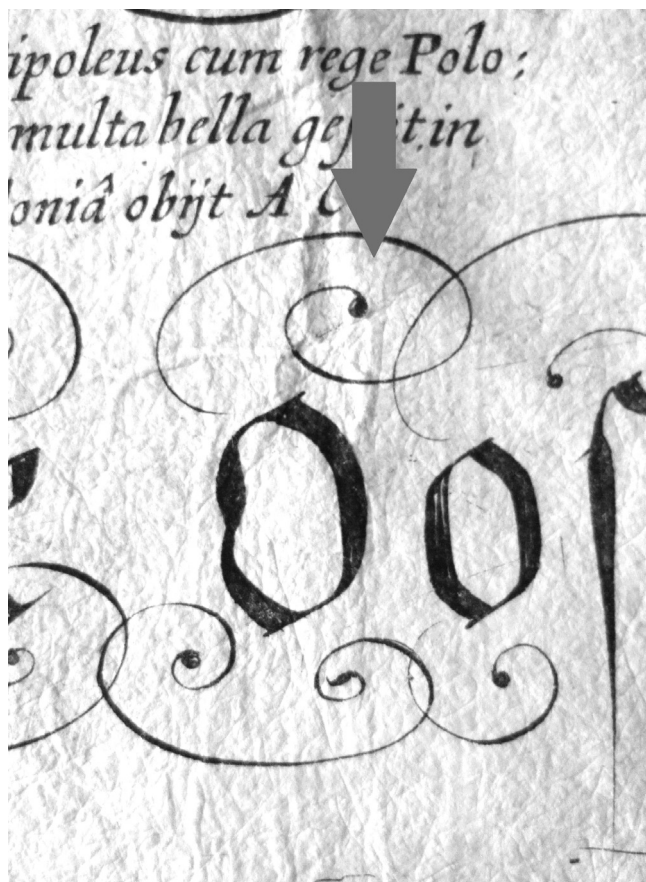 ipoleus cum rege Polo:
multa bella in
loniâ obijt A
O o